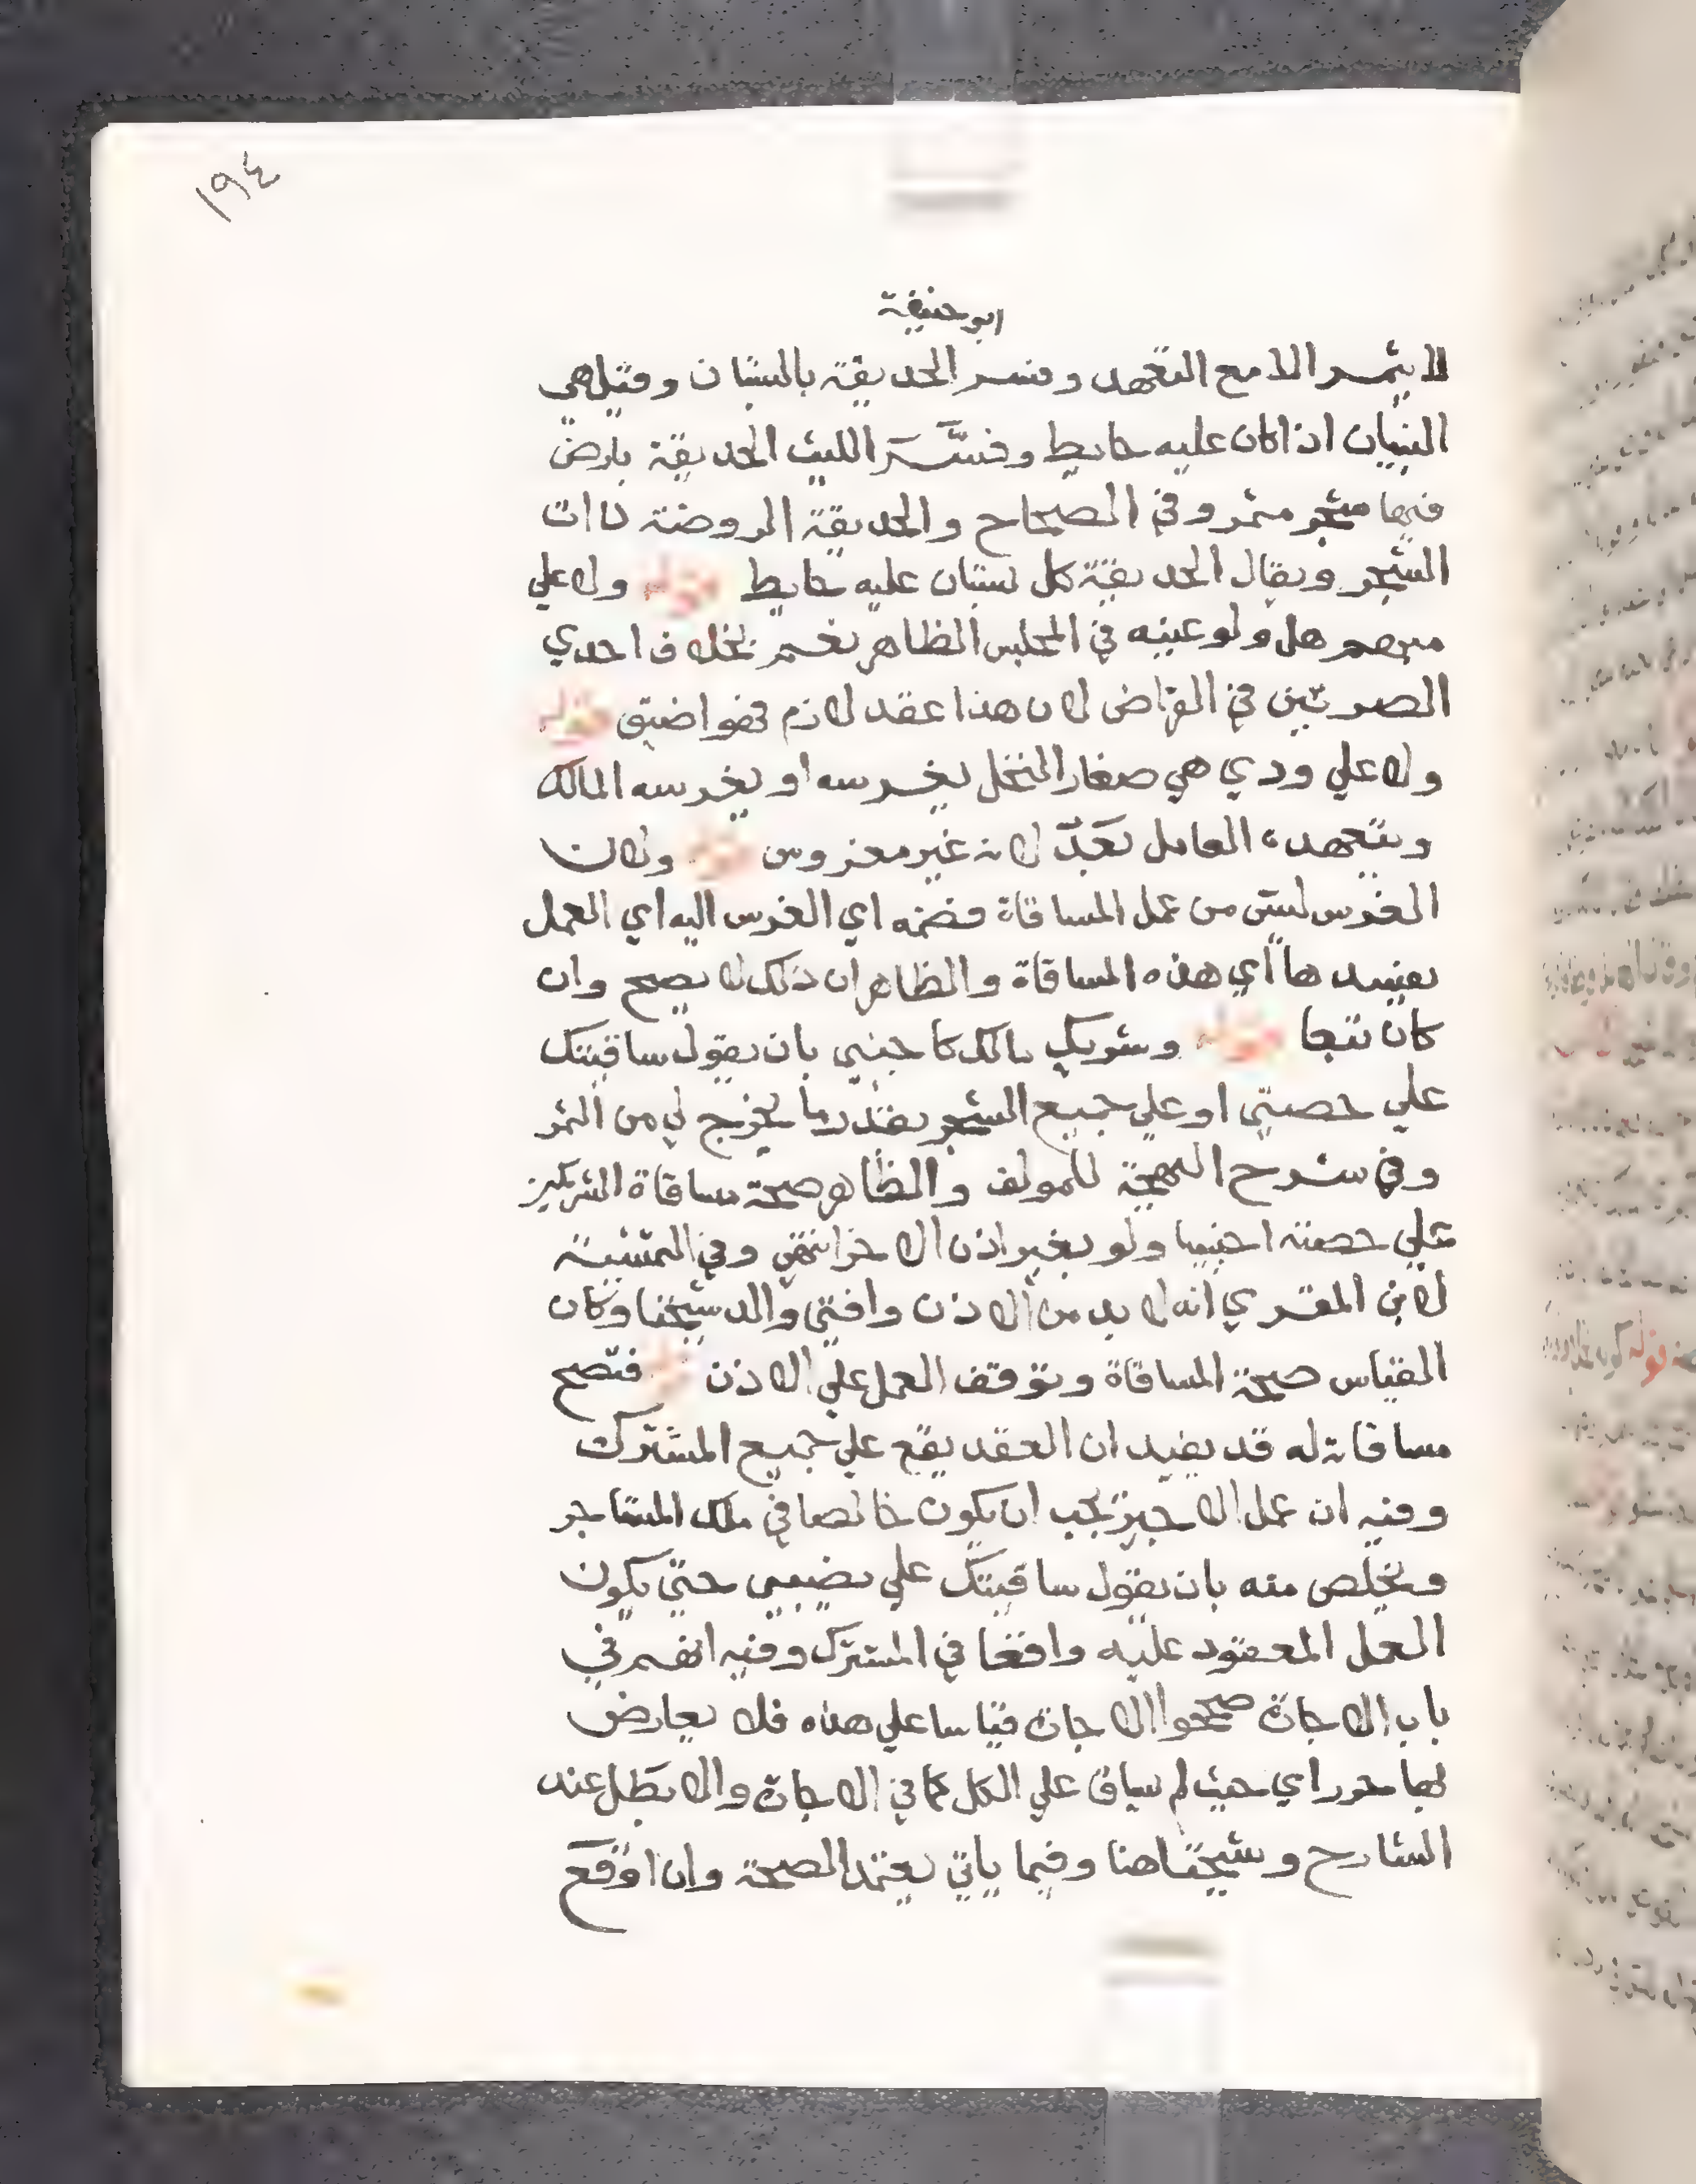 ١٩٤
ابو حنيفة
لا يثمر الا مع التعهد وفسر الحديقة بالبستان وقيل هي
البنيان اذا كان عليه حايط وفسَّر الليث الحديقة بارض
فيها شجر مثمر وفي الصحاح والحديقة الروضة ذات
الشجر ويقال الحديقة كل بستان عليه حايط قوله ولا علي
مبهم هل ولو عينه في المجلس الظاهر نعم بخلاف احدي
الصرتين في القراض لان هذا عقد لازم فهو اضيق قوله
ولا علي ودي هي صغار النخل يغرسه او يغرسه المالك
ويتعهده العامل بَعْدُ لانه غير مغروس قوله ولان
الغرس ليس من عمل المساقاة فضمه اي الغرس اليه اي العمل
يفسدها اي هذه المساقاة والظاهر ان ذلك لا يصح وان
كان تبعا قوله وشريك مالك كاجنبي بان يقول ساقيتك
علي حصتي او علي جميع الشجر بقدر ما يخرج لي من الثمر
وفي شرح البهجة للمولف والظاهر صحة مساقاة الشريكين
علي حصته اجنبيا ولو بغير اذن الاخر انتهي وفي التمشية
لابن المقري انه لا بد من الاذن وافتي والد شيخنا وكان
القياس صحة المساقاة وتوقف العمل علي الاذن قوله فتصح
مساقاته له قد يفيد ان العقد يقع علي جميع المشترك
وفيه ان عمل الاجير يجب ان يكون خالصا في ملك المستاجر
ويخلص منه بان يقول ساقيتك علي نصيبي حتي يكون
العمل المعقود عليه واقعا في المشترك وفيه انهم في
باب الاجارة صححوا الاجارة قياسا علي هذه فلا يعارض
بها اي حيث لم يساق علي الكل كما في الاجارة والا بطل عند
الشارح وشيخنا هنا وفيما ياتي يعتمد الصحة وان اوقع